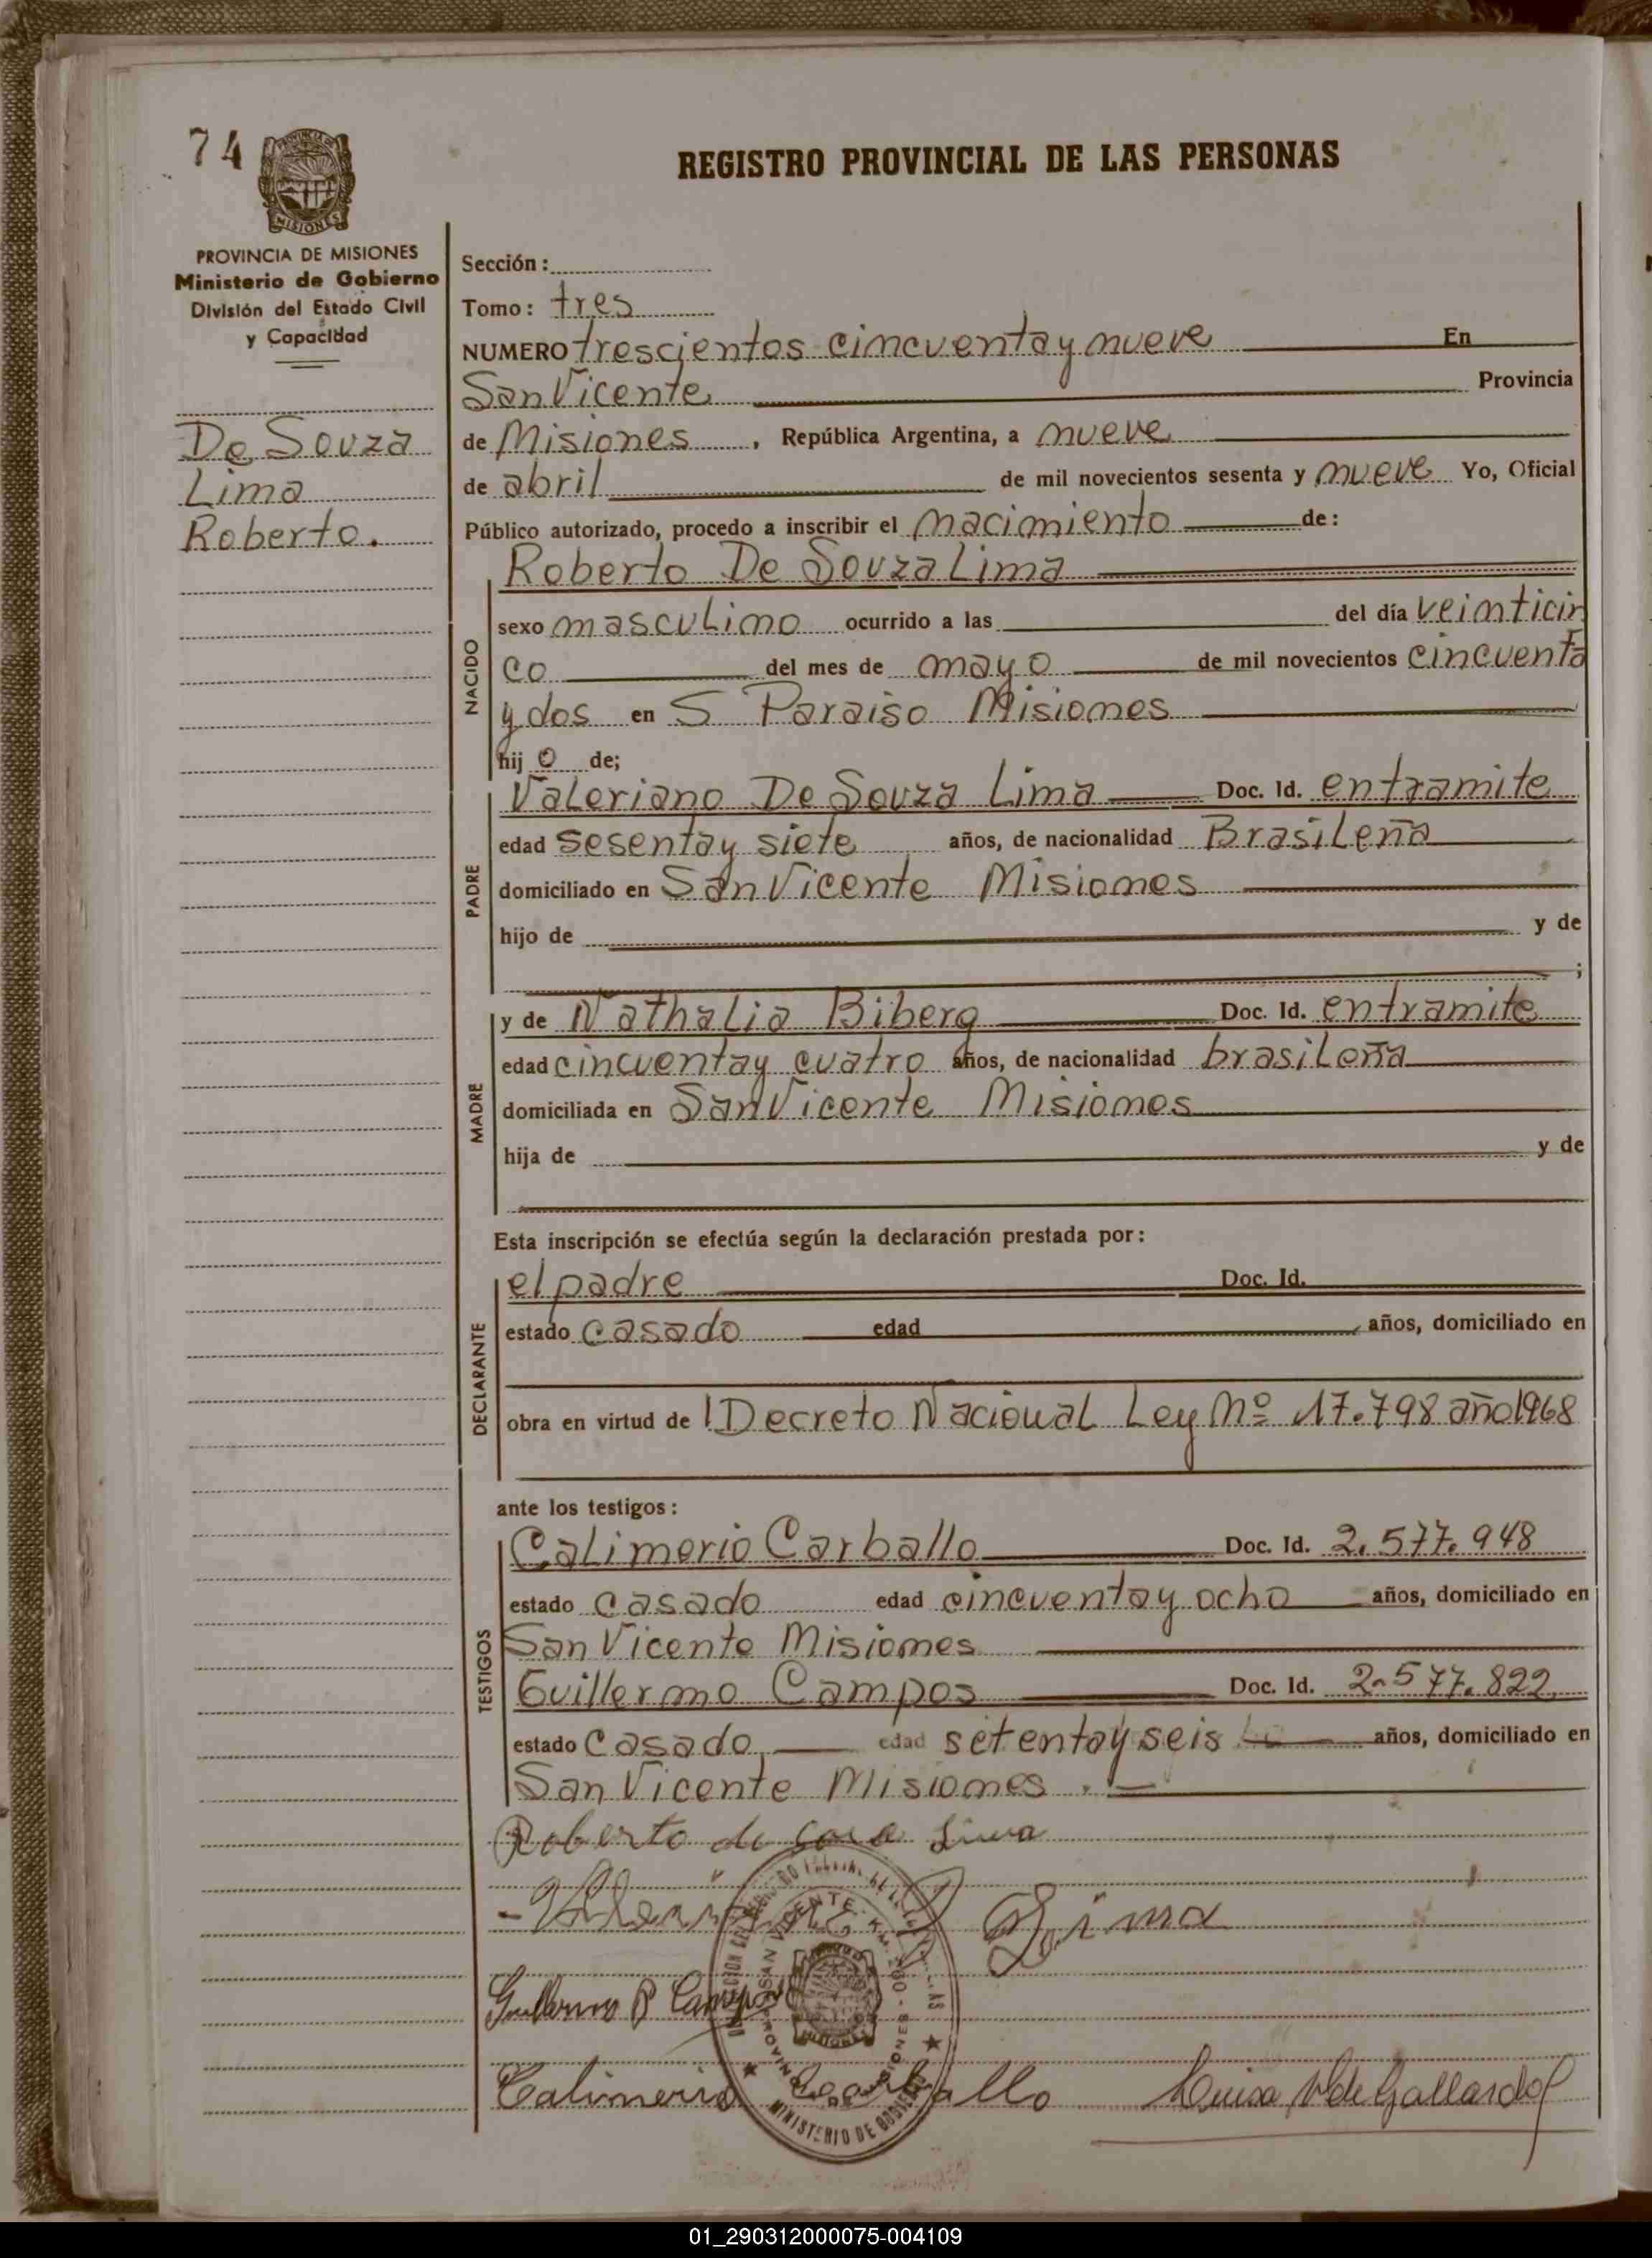 74
PROVINCIA DE MISIONES
Ministerio de Gobierno
División del Estado Civil
y Capacidad
De Souza
Lima
Roberto.
REGISTRO PROVINCIAL DE LAS PERSONAS
Sección:
Tomo: tres
NUMERO trescientos cincuenta y nueve En
San Vicente Provincia
de Misiones, República Argentina, a nueve
de abril de mil novecientos sesenta y nueve Yo, Oficial
Público autorizado, procedo a inscribir el nacimiento de:
NACIDO
Roberto De Souza Lima
sexo masculino ocurrido a las del día veinticin
co del mes de mayo de mil novecientos cincuenta
y dos en S Paraiso Misiones
hij o de;
PADRE
Valeriano De Souza Lima Doc. Id. entramite
edad sesenta y siete años, de nacionalidad Brasileña
domiciliado en San Vicente Misiones
hijo de y de
;
MADRE
y de Nathalia Biberg Doc. Id. entramite
edad cincuenta y cuatro años, de nacionalidad brasileña
domiciliada en San Vicente Misiones
hija de y de
Esta inscripción se efectúa según la declaración prestada por:
DECLARANTE
el padre Doc. Id.
estado casado edad años, domiciliado en
obra en virtud de Decreto Nacional Ley Nº 17.798 año 1968
ante los testigos:
TESTIGOS
Calimerio Carballo Doc. Id. 2.577.948
estado casado edad cincuenta y ocho años, domiciliado en
San Vicente Misiones
Guillermo Campos Doc. Id. 2.577.822
estado casado edad setenta y seis años, domiciliado en
San Vicente Misiones.
Roberto de Lima
Lima
Guillermo R Campos
Calimerio Carballo Luisa V de Gallardo
SAN VICENTE
MINISTERIO DE GOBIERNO
MISIONES
01_290312000075-004109